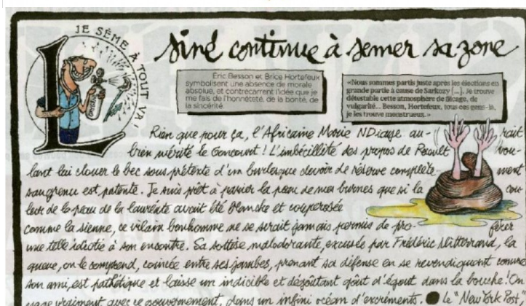 JE SÈME À TOUT VA!
Siné continue à semer sa zone
Éric Besson et Brice Hortefeux
symbolisent une absence de morale
absolue, et contrecarrent l'idée que je
me fais de l'honnêteté, de la bonté, de
la sincérité.
«Nous sommes partis juste après les élections en
grande partie à cause de Sarkozy [...]. Je trouve
détestable cette atmosphère de flicage, de
vulgarité... Besson, Hortefeux, tous ces gens-là, je
les trouve monstrueux.»
Rien que pour ça, l'Africaine Marie NDiaye au-rait
bien mérité le Goncourt! L'imbécillité des propos de Raoult vou-
lant lui clouer le bec sous prétexte d'un burlesque devoir de réserve complète-ment
saugrenu est patente. Je suis prêt à parier la peau de mes burnes que si la cou-
leur de la peau de la lauréate avait été blanche et couperosée
comme la sienne, ce vilain bonhomme ne se serait jamais permis de pro-férer
une telle idiotie à son encontre. Sa sottise malodorante, excusée par Frédéric Mitterrand, la
queue, on le comprend, coincée entre ses jambes, prenant sa défense en se revendiquant comme
son ami, est pathétique et laisse un indicible et dégoûtant goût d'égout dans la bouche! On
nage vraiment avec ce gouvernement, dans un infini océan d'excréments. Le "New York